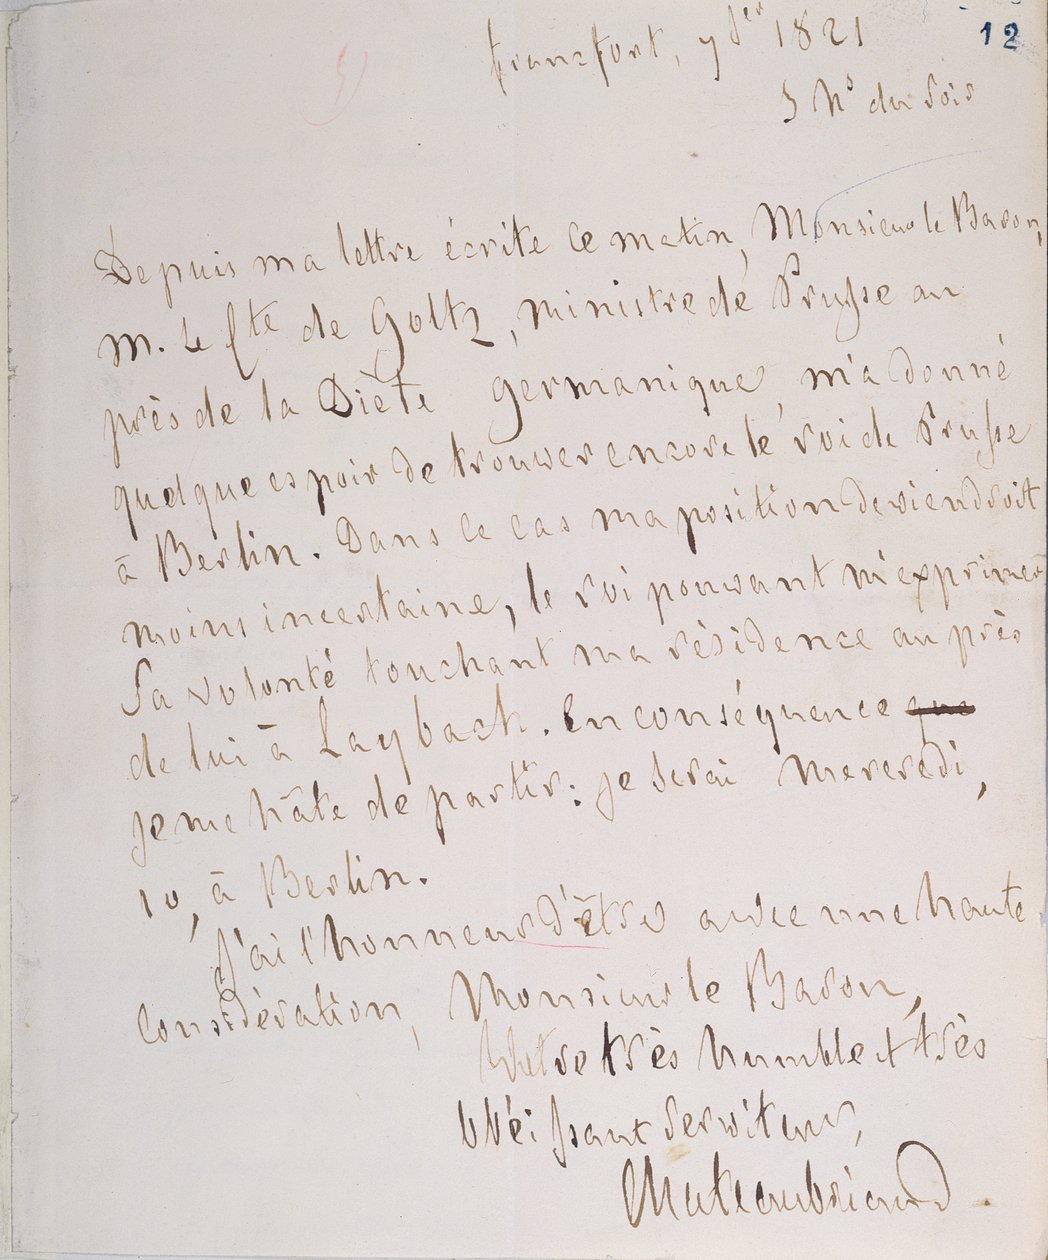 12
francfort, 7 Jer 1821
5 hs du soir
Depuis ma lettre écrite ce matin, Monsieur le Baron,
M. le Cte de Goltz, ministre de Prusse au
près de la Diète germanique, m'a donné
quelque espoir de trouver encore le roi de Prusse
à Berlin. Dans ce cas ma position deviendroit
moins incertaine, le roi pouvant m'exprimer
sa volonté touchant ma résidence au près
de lui à Laybach. En conséquence que
je me hâte de partir: je serai mercredi,
10, à Berlin.
J'ai l'honneur d'être avec une haute
considération, Monsieur le Baron,
Votre très humble et très
obéissant serviteur,
Chateaubriand.